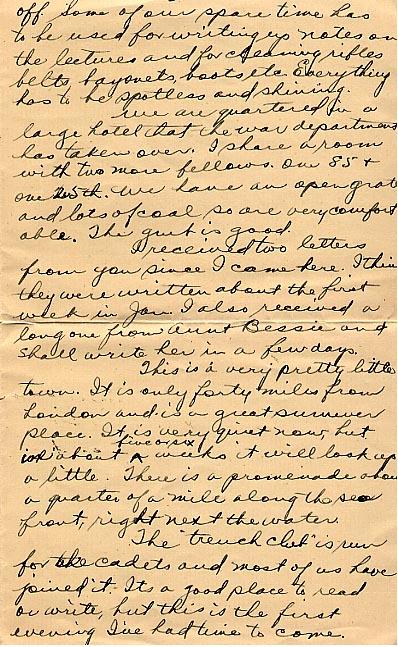 off. Some of our spare time has
to be used for writing up notes on
the lectures and for cleaning rifles
belts, bayonets, boots etc. Everything
has to be spotless and shining.
We are quartered in a
large hotel that the war department
has taken over. I share a room
with two more fellows. one 85 +
one We have an open grate
and lots of coal so are very comfort
able. The grub is good.
I received two letters
from you since I came here. I thin
they were written about the first
week in Jan. I also received a
long one from Aunt Bessie and
shall write her in a few days.
This is a very pretty little
town. It is only forty miles from
London and is a great summer
place. It is very quiet now, but
in about five or six weeks it will look up
a little. There is a promenade about
a quarter of a mile along the sea
front, right next the water.
The "trench club" is run
for the cadets and most of us have
joined it. Its a good place to read
or write, but this is the first
evening I've had time to come.